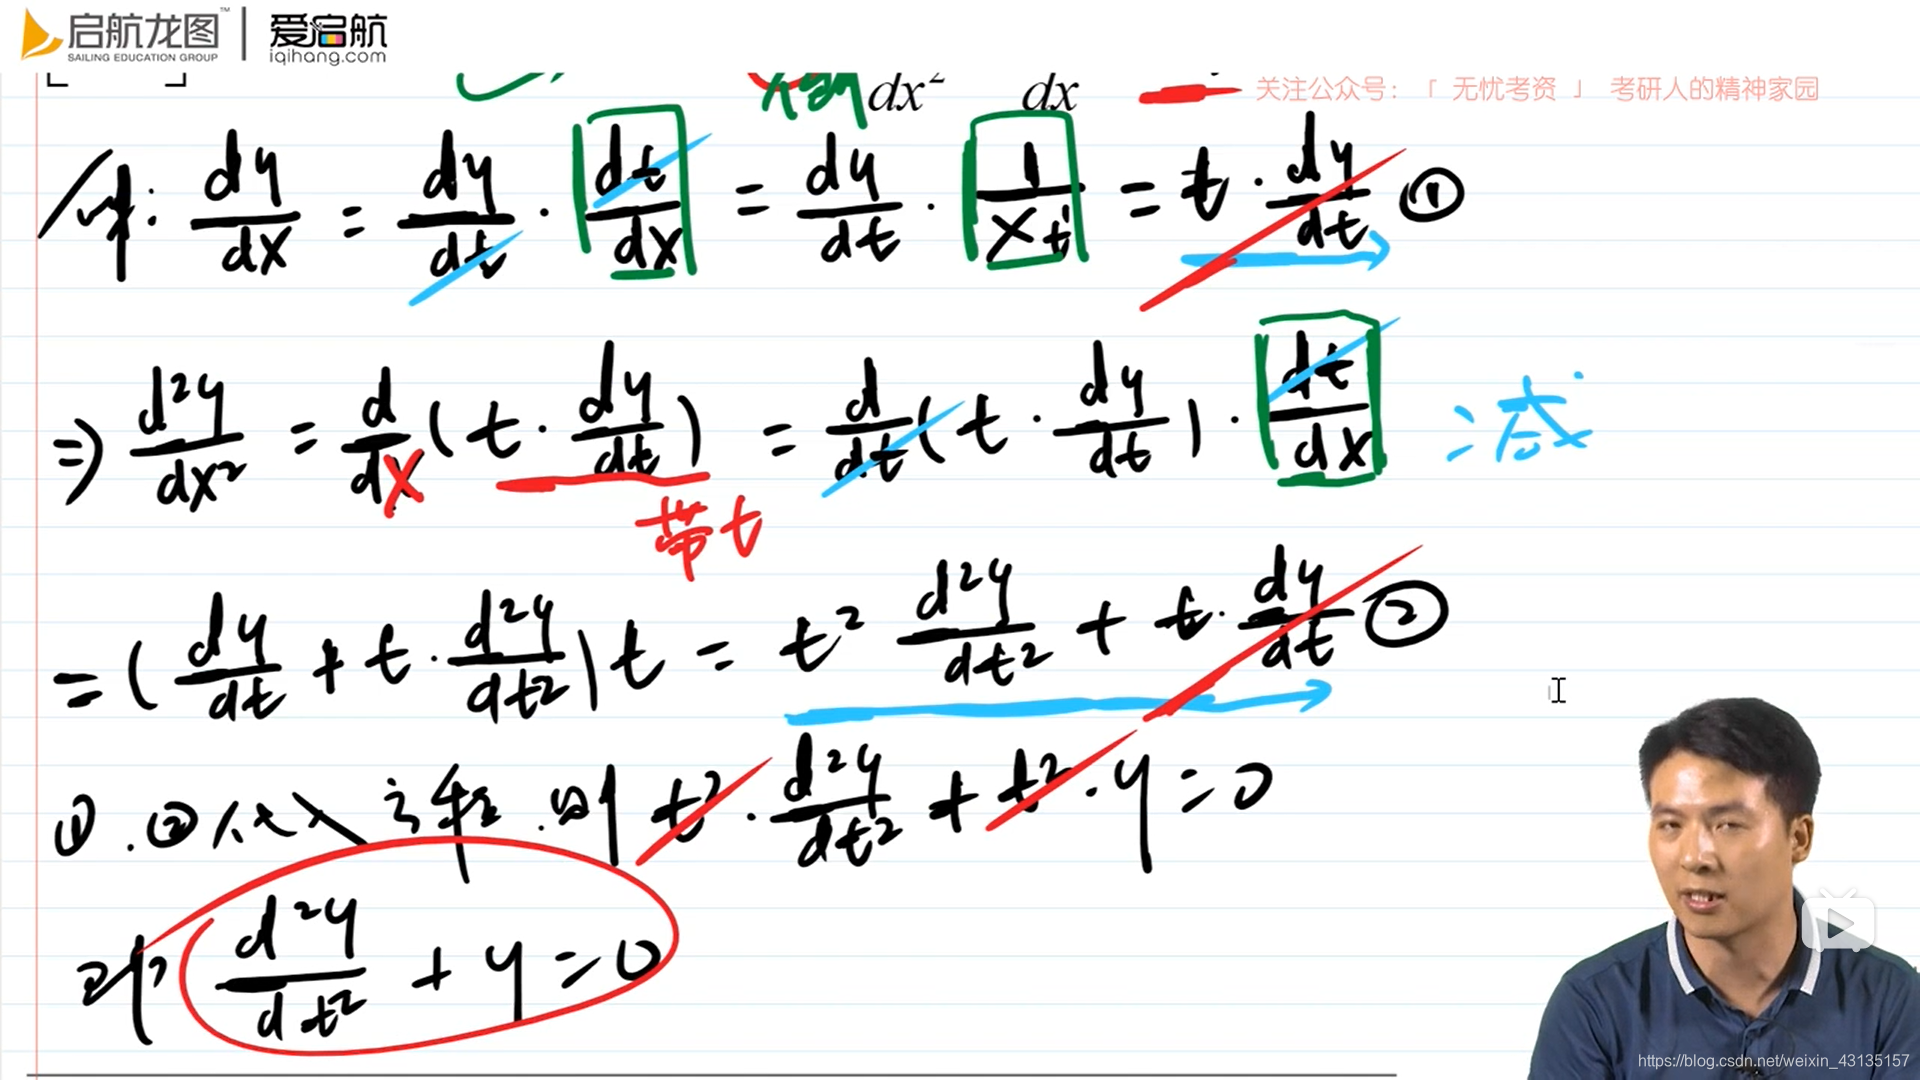 启航龙图™ 爱启航
SAILING EDUCATION GROUP iqihang.com
dx² dx 关注公众号：「 无忧考资 」 考研人的精神家园
解: dy/dx = dy/dt · dt/dx = dy/dt · 1/x't = t · dy/dt ①
⇒ d²y/dx² = d/dx (t · dy/dt) = d/dt (t · dy/dt) · dt/dx
带t
= (dy/dt + t · d²y/dt²) t = t² d²y/dt² + t · dy/dt ②
①.②代入方程.则 t² · d²y/dt² + t² · y = 0
即 d²y/dt² + y = 0
https://blog.csdn.net/weixin_43135157